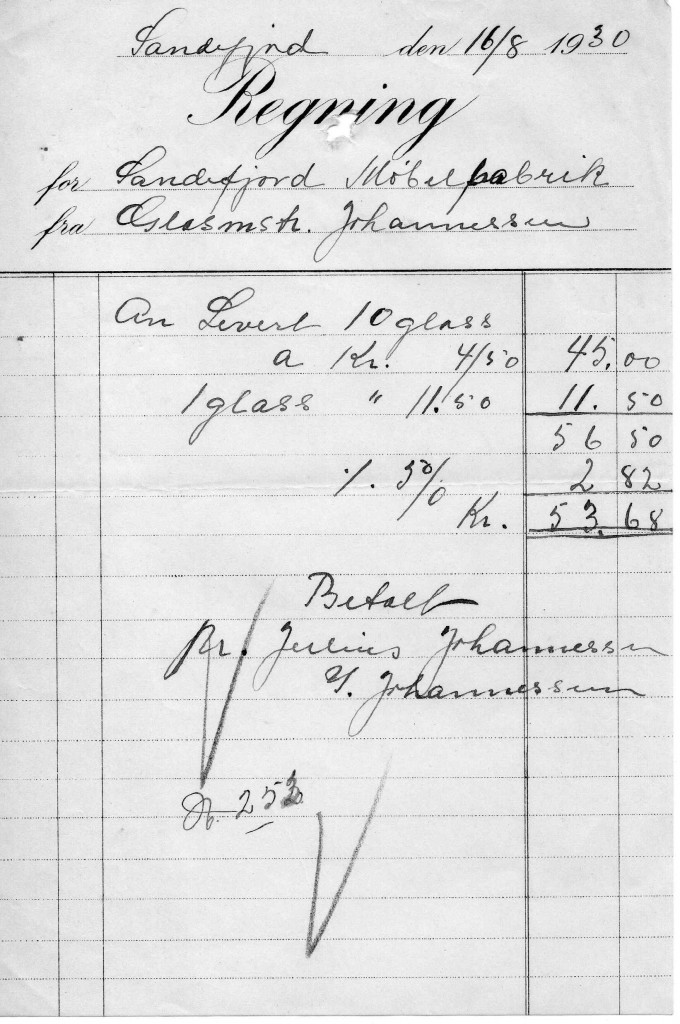 Sandefjord den 16/8 1930
Regning
for Sandefjord Møbelfabrik
fra Glasmstr. Johannessen
An Levert 10 glass
a Kr. 4/50 45.00
1 glass " 11.50 11.50
56 50
%. 5% 2 82
Kr. 53.68
Betalt
pr. Julius Johannessen
Y. Johannessen
253